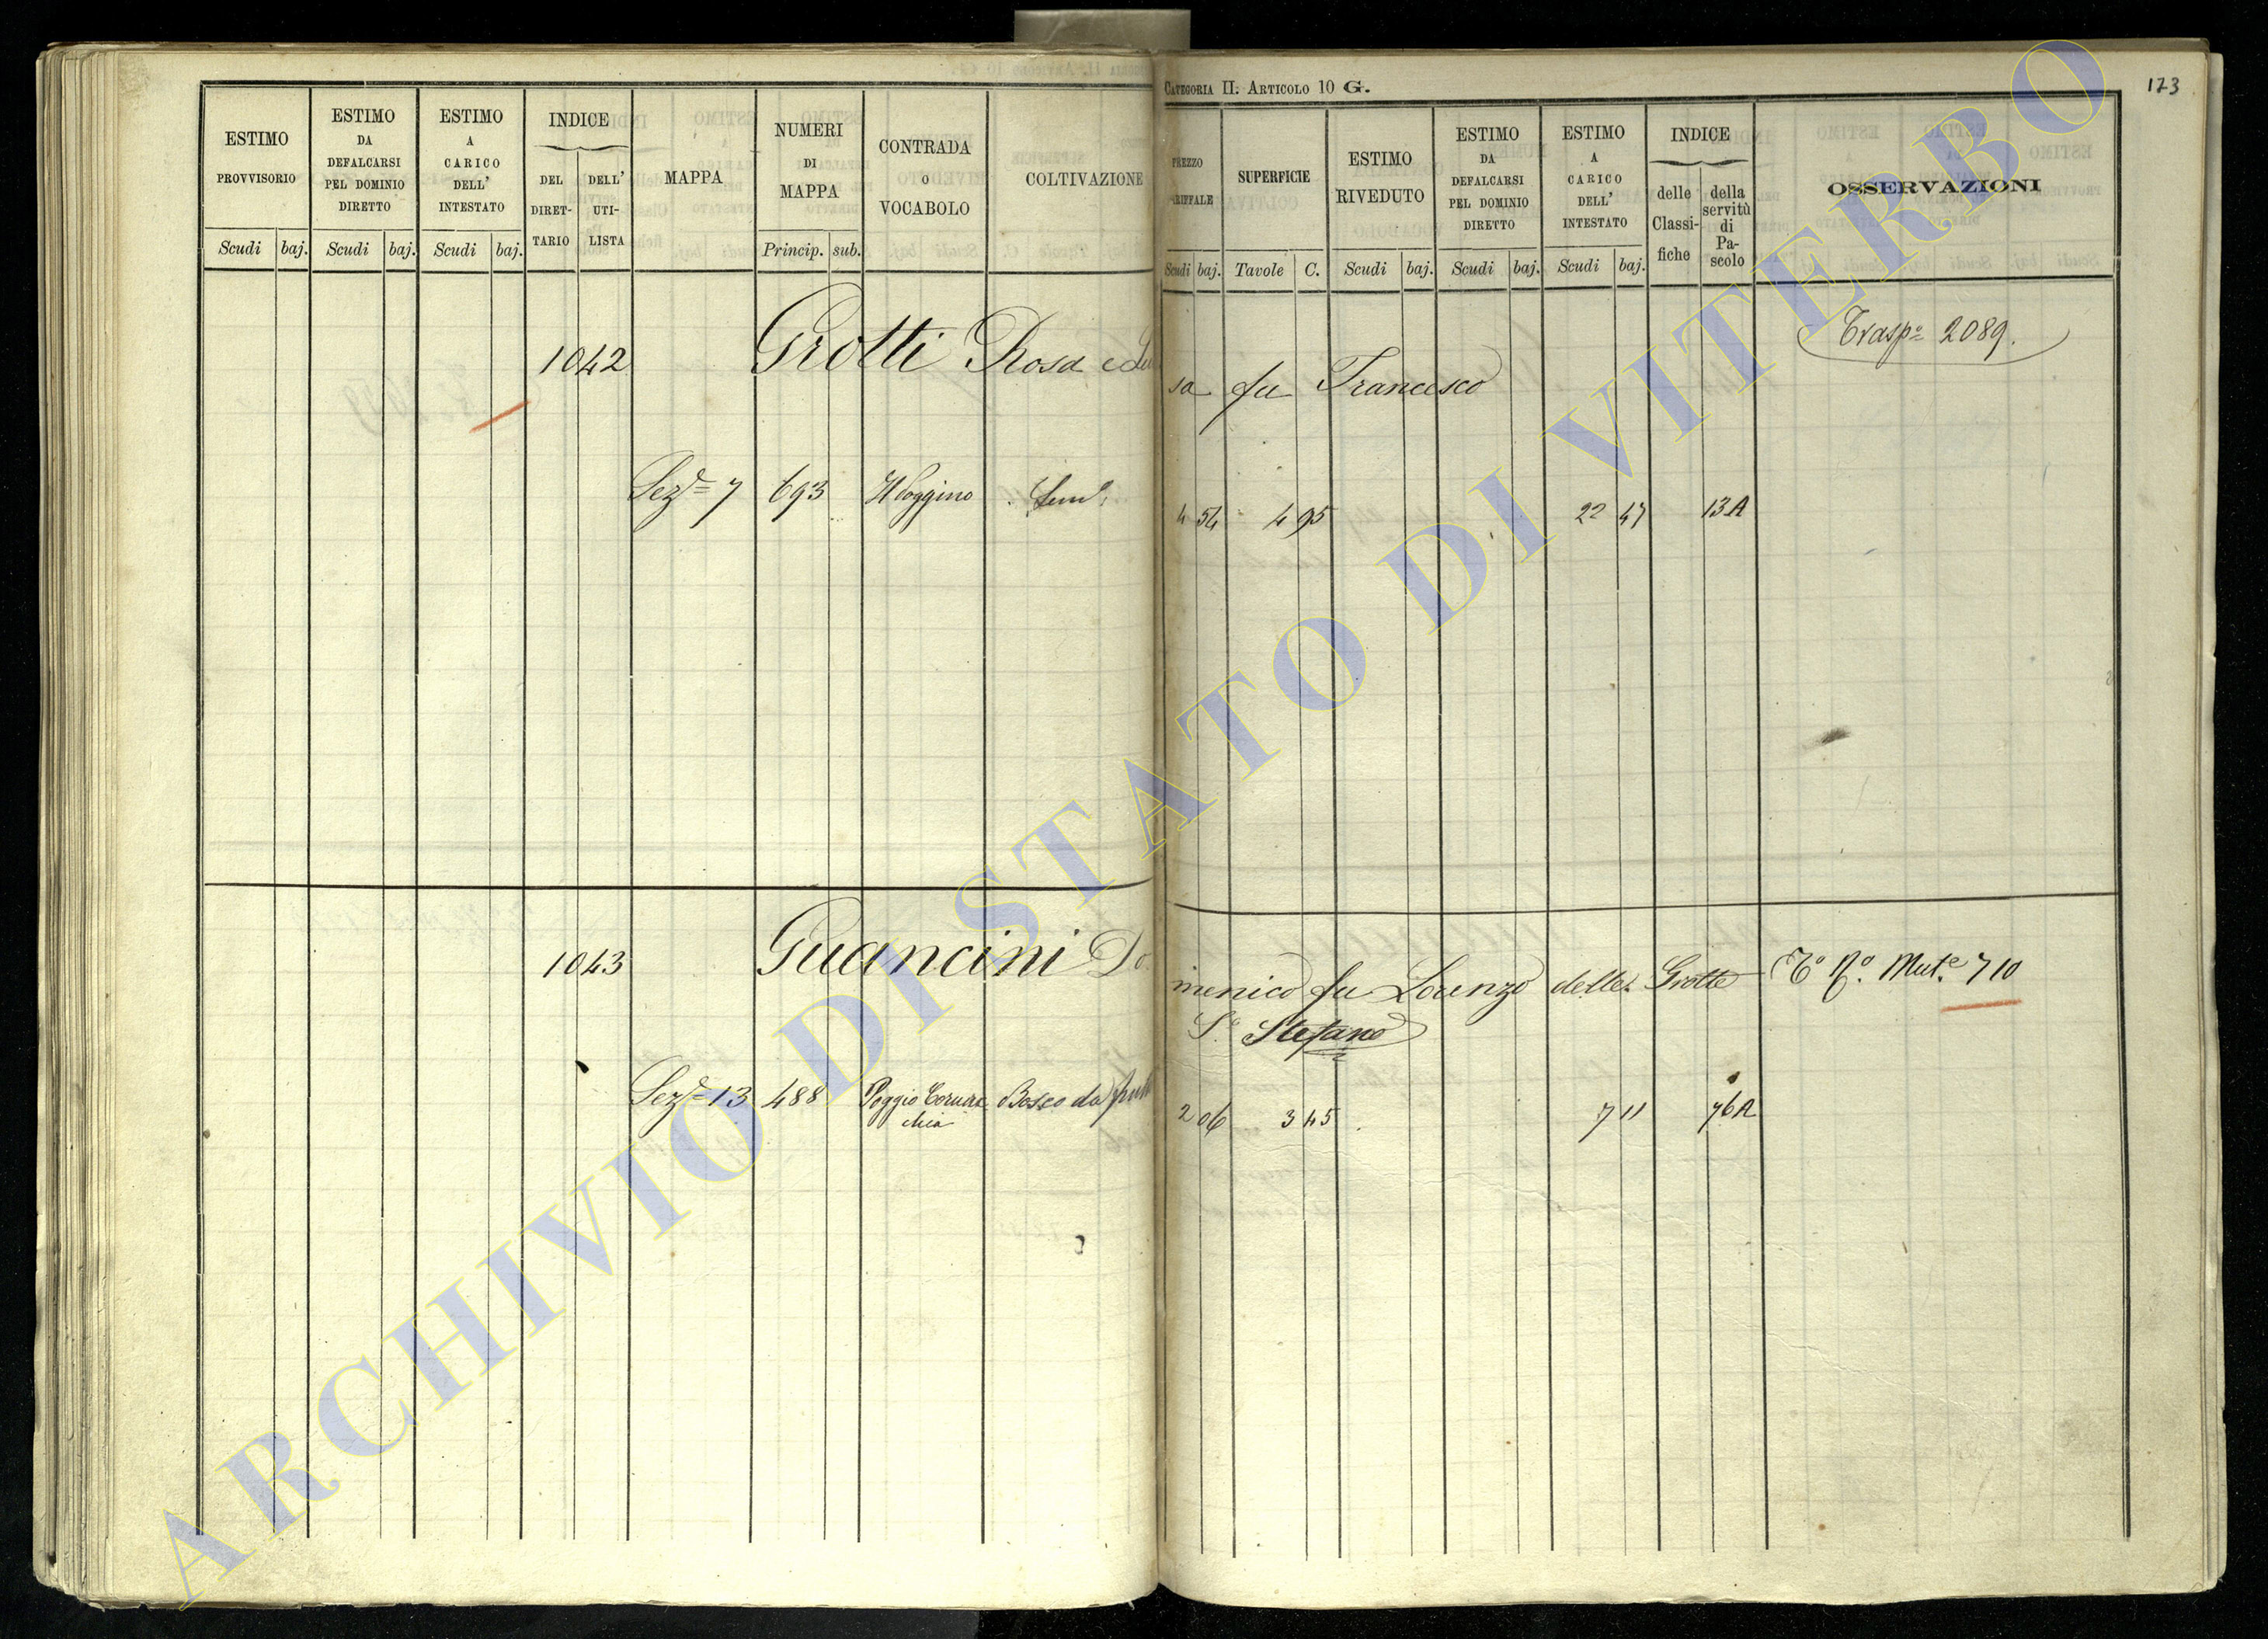 CATEGORIA II. ARTICOLO 10 G.
173
ESTIMO PROVVISORIO
Scudi baj.
ESTIMO DA DEFALCARSI PEL DOMINIO DIRETTO
Scudi baj.
ESTIMO A CARICO DELL' INTESTATO
Scudi baj.
INDICE
DEL DIRET-TARIO
DELL' UTI-LISTA
MAPPA
NUMERI DI MAPPA
Princip. sub.
CONTRADA O VOCABOLO
COLTIVAZIONE
PREZZO
Scudi baj.
SUPERFICIE
Tavole C.
ESTIMO RIVEDUTO
Scudi baj.
ESTIMO DA DEFALCARSI PEL DOMINIO DIRETTO
Scudi baj.
ESTIMO A CARICO DELL' INTESTATO
Scudi baj.
INDICE
delle Classi-fiche
della servitù di Pa-scolo
OSSERVAZIONI
1042 Grotti Rosa e Lui
sa fu Francesco
Trasp.o 2089.
Sez.e 7 693 Il Poggino Sem.o 4 54 4 95 22 47 13A
1043 Guancini Do
menico fu Lorenzo delle Grotte
S. Stefano
T.o N.o Mut.e 710
Sez.e 13 488 Poggio Cornac
chia
Bosco da 2 06 3 45 7 11 76A
ARCHIVIO DI STATO DI VITERBO